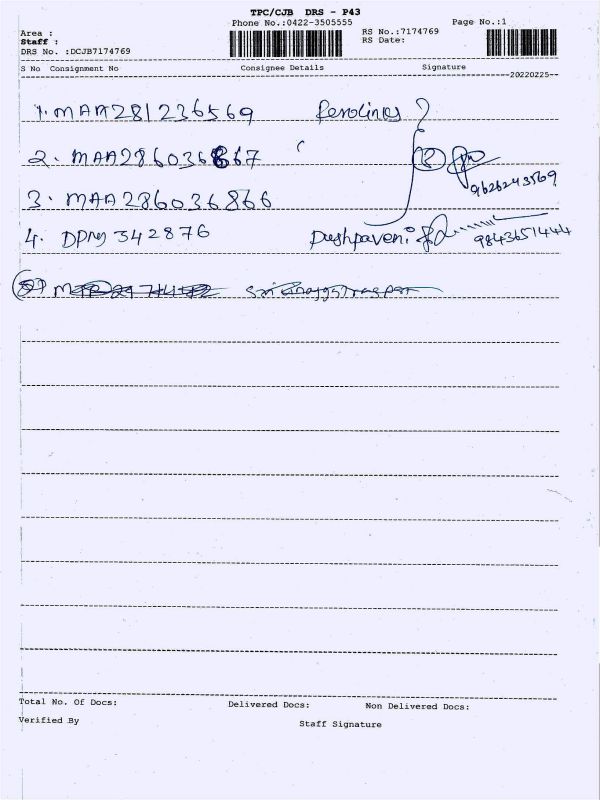 TPC/CJB DRS - P43
Phone No.:0422-3505555
Page No.:1
Area :
Staff :
DRS No. :DCJB7174769
RS No.:7174769
RS Date:
S No Consignment No Consignee Details Signature
20220225
1. MAA281236569
2. MAA286036867
9626243569
3. MAA286036866
4. DPM 342876 Pushpaveni 9843651444
Total No. Of Docs: Delivered Docs: Non Delivered Docs:
Verified By Staff Signature